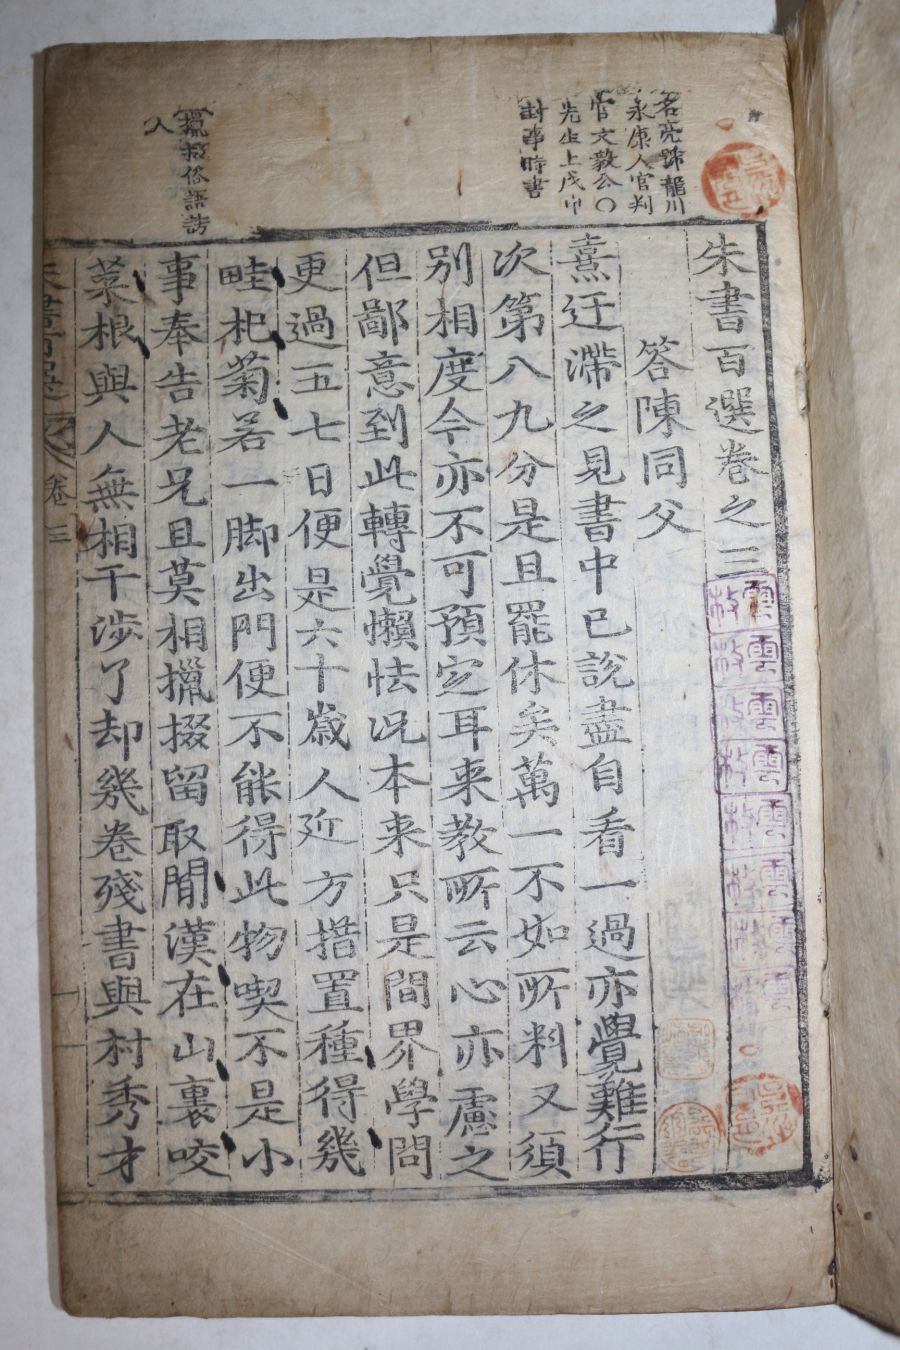 名亮號龍川
永康人官判
官文毅公〇
先生上戊申
封事時書
攛掇俗語誘
人
朱書百選卷之三
答陳同父
熹迂滯之見書中已說盡自看一過亦覺難行
次第八九分是且罷休矣萬一不如所料又須
別相度今亦不可預定耳来教所云心亦慮之
但鄙意到此轉覺懶怯况本来只是間界學問
更過五七日便是六十歲人近方措置種得幾
畦杞菊若一脚出門便不能得此物喫不是小
事奉告老兄且莫相攛掇留取閒漢在山裏咬
菜根與人無相干涉了却幾卷殘書與村秀才
朱書百選 卷三